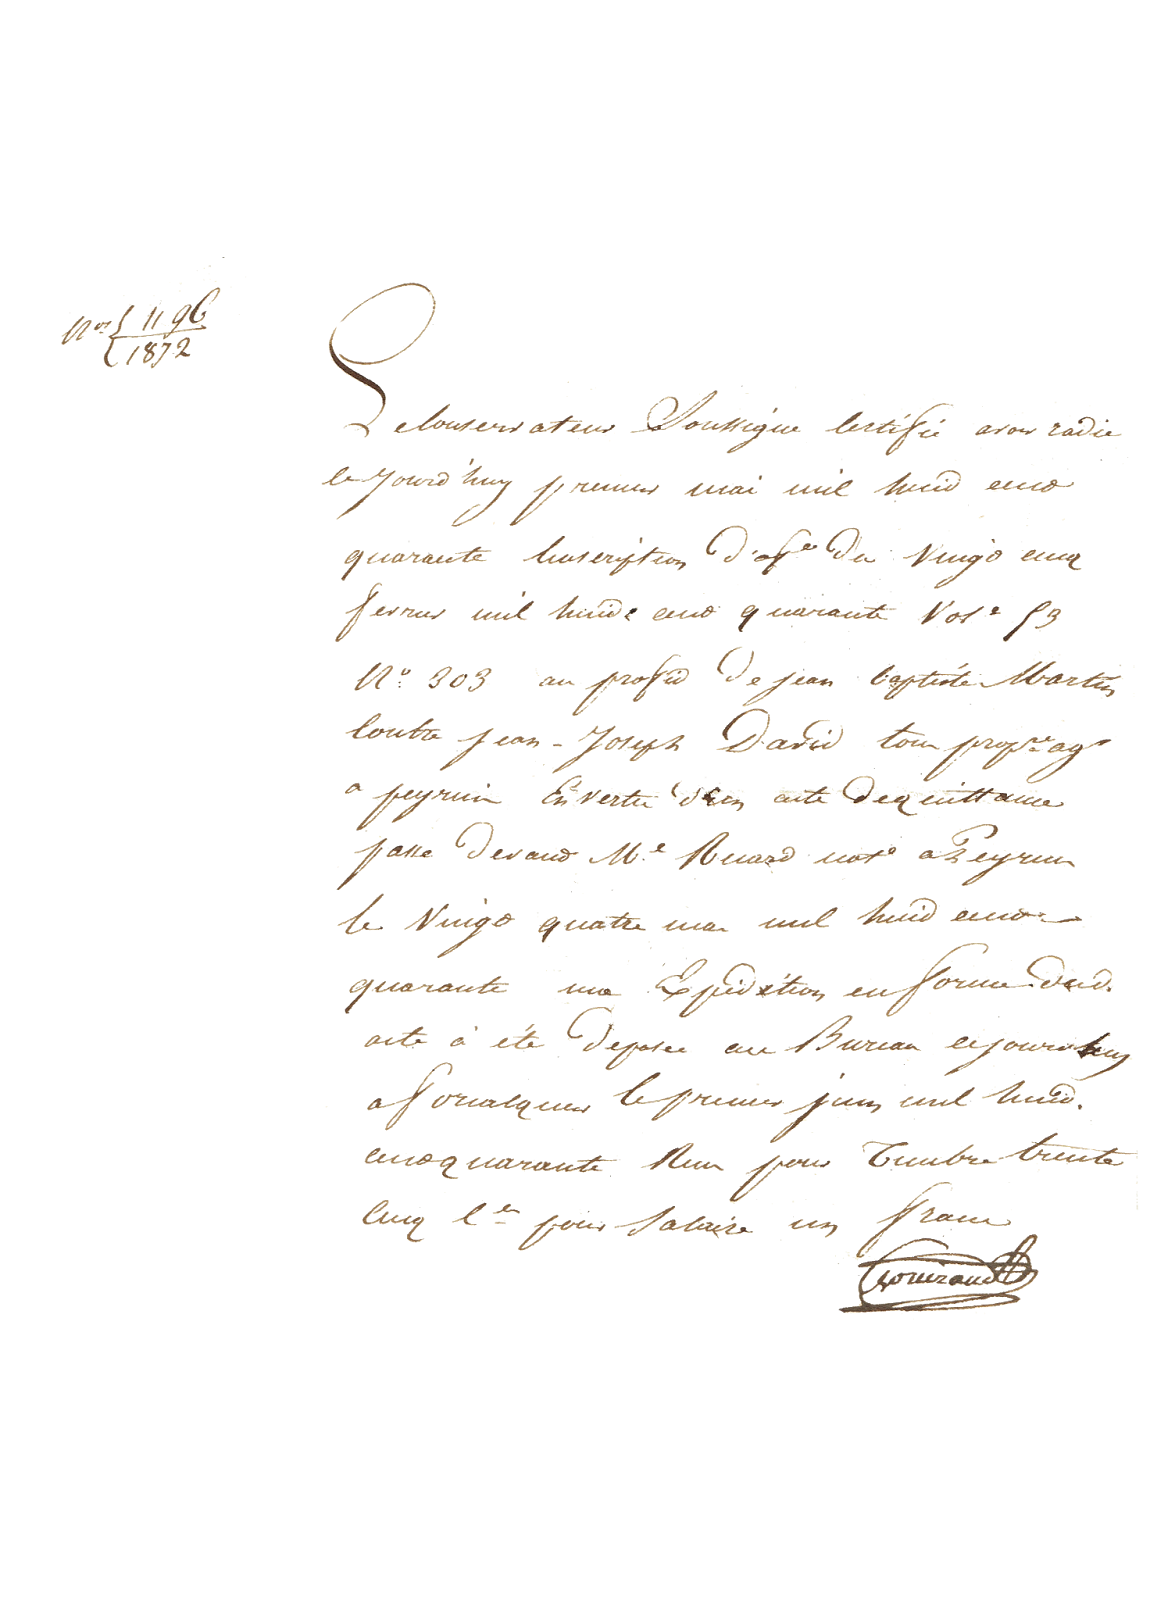 Nos { 1196
1872
Le Conservateur Soussigné Certifie avoir radié
Ce Jourd'huy premier mai mil huit cent
quarante L'inscription d'off.ce du Vingt cinq
fevrier mil huit cent quarante Vol.e 53
N.o 303 au profit de jean baptiste Martin
Contre jean-Joseph David tous prop.res ag.s
a peyruis En vertu d'un acte de quittance
passé devant M.e Ruard not.e a Peyruis
le Vingt quatre mai mil huit cent
quarante une Expédition en forme dud.
acte à été déposée au Bureau ce jourd'huy
a forcalquier le premier juin mil huit
cent quarante Recu pour Timbre trente
Cinq C.es pour Salaire un franc